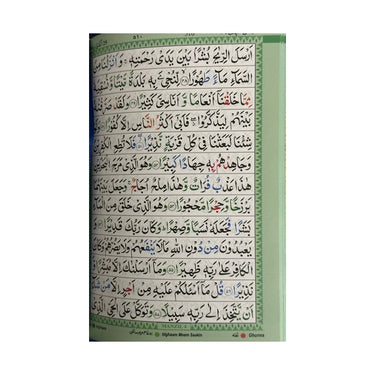 ٥١٠
اَرْسَلَ الرِّيٰحَ بُشْرًۢا بَيْنَ يَدَىْ رَحْمَتِهٖ ۚ وَاَنْزَلْنَا مِنَ
السَّمَآءِ مَآءً طَهُوْرًا ﴿۴۸﴾ لِّنُحْیِۦَ بِهٖ بَلْدَةً مَّيْتًا وَّنُسْقِيَهٗ
مِمَّا خَلَقْنَاۤ اَنْعَامًا وَّاَنَاسِىَّ كَثِيْرًا ﴿۴۹﴾ وَلَقَدْ صَرَّفْنٰهُ
بَيْنَهُمْ لِيَذَّكَّرُوْا ۖ فَاَبٰۤى اَكْثَرُ النَّاسِ اِلَّا كُفُوْرًا
شِئْنَا لَبَعَثْنَا فِىْ كُلِّ قَرْيَةٍ نَّذِيْرًا ﴿۵۱﴾ فَلَا تُطِعِ الْكٰفِرِيْنَ
وَجَاهِدْهُمْ بِهٖ جِهَادًا كَبِيْرًا ﴿۵۲﴾ وَهُوَ الَّذِىْ مَرَجَ الْبَحْرَيْنِ
هٰذَا عَذْبٌ فُرَاتٌ وَّهٰذَا مِلْحٌ اُجَاجٌ ۚ وَجَعَلَ بَيْنَهُمَا
بَرْزَخًا وَّحِجْرًا مَّحْجُوْرًا ﴿۵۳﴾ وَهُوَ الَّذِىْ خَلَقَ مِنَ الْمَآءِ
بَشَرًا فَجَعَلَهٗ نَسَبًا وَّصِهْرًا ؕ وَكَانَ رَبُّكَ قَدِيْرًا ﴿۵۴﴾
يَعْبُدُوْنَ مِنْ دُوْنِ اللّٰهِ مَا لَا يَنْفَعُهُمْ
الْكَافِرُ عَلٰى رَبِّهٖ ظَهِيْرًا ﴿۵۵﴾ وَمَاۤ اَرْسَلْنٰكَ اِلَّا
نَذِيْرًا ﴿۵۶﴾ قُلْ مَاۤ اَسْـَٔلُكُمْ عَلَيْهِ مِنْ اَجْرٍ اِلَّا مَنْ
اَنْ يَّتَّخِذَ اِلٰى رَبِّهٖ سَبِيْلًا ﴿۵۷﴾ وَتَوَكَّلْ عَلَى الْحَىِّ الَّذِىْ
MANZIL 4
Idghaam Meem Saakin
Ghunna غنّہ